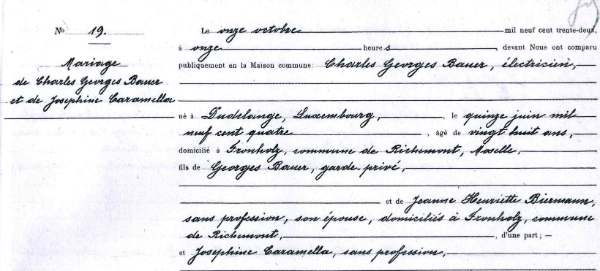 No 19.
Mariage
de Charles Georges Bauer
et de Josephine Caramella
Le onze octobre mil neuf cent trente-deux,
à onze heures, devant Nous ont comparu
publiquement en la Maison commune: Charles Georges Bauer, électricien,
né à Dudelange, Luxembourg, le quinze juin mil
neuf cent quatre, âgé de vingt huit ans,
domicilié à Gronholz, commune de Richemont, Moselle,
fils de Georges Bauer, garde privé,
et de Jeanne Henriette Biermann,
sans profession, son épouse, domiciliés à Gronholz, commune
de Richemont, d'une part; —
et Josephine Caramella, sans profession,